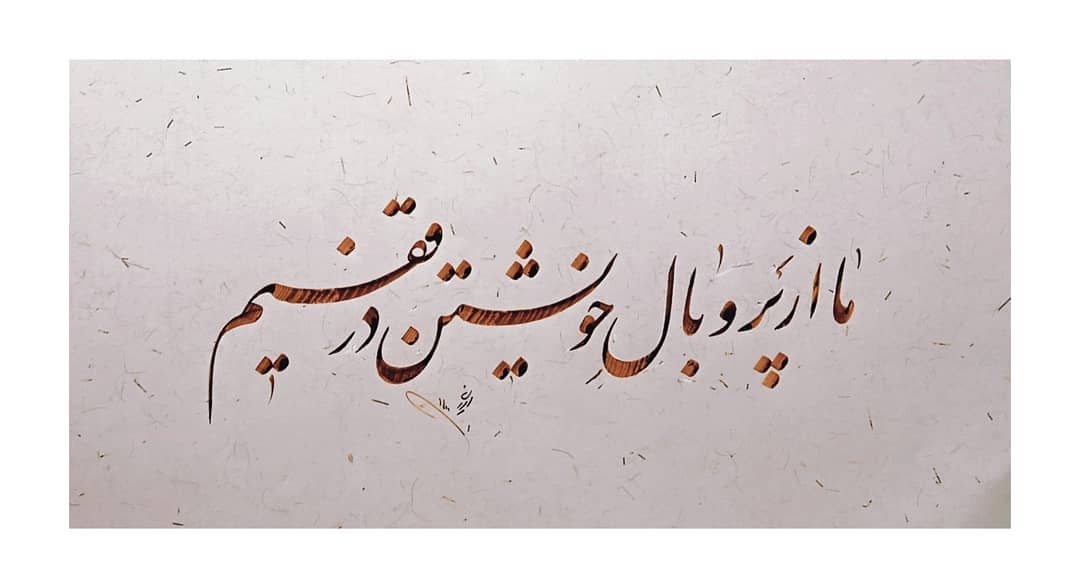 ما از پر و بال خویشتن در قفسیم